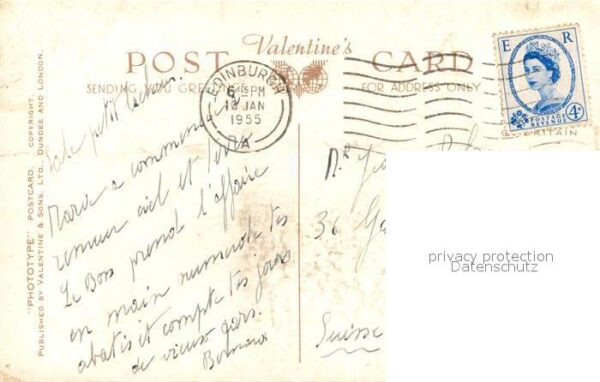 Valentine's
POST CARD
SENDING YOU GREETINGS FOR ADDRESS ONLY
EDINBURGH
6 15 PM
10 JAN
1955
A
E R
4D
POSTAGE REVENUE
GT. BRITAIN
"PHOTOTYPE" POSTCARD. COPYRIGHT.
PUBLISHED BY VALENTINE & SONS, LTD., DUNDEE AND LONDON.
petit
Marie a commencé
remuer ciel et terre
Le Boss prend l'affaire
en main numerote tes
abatis et compte tes jours
de vieux gars.
36
Suisse
privacy protection
Datenschutz